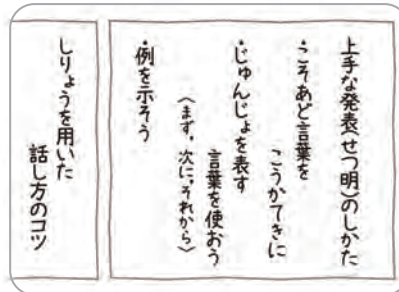 上手な発表(せつ明)のしかた
・こそあど言葉を
こうかてきに
・じゅんじょを表す
言葉を使おう
〈まず、次に、それから〉
・例を示そう
しりょうを用いた
話し方のコツ